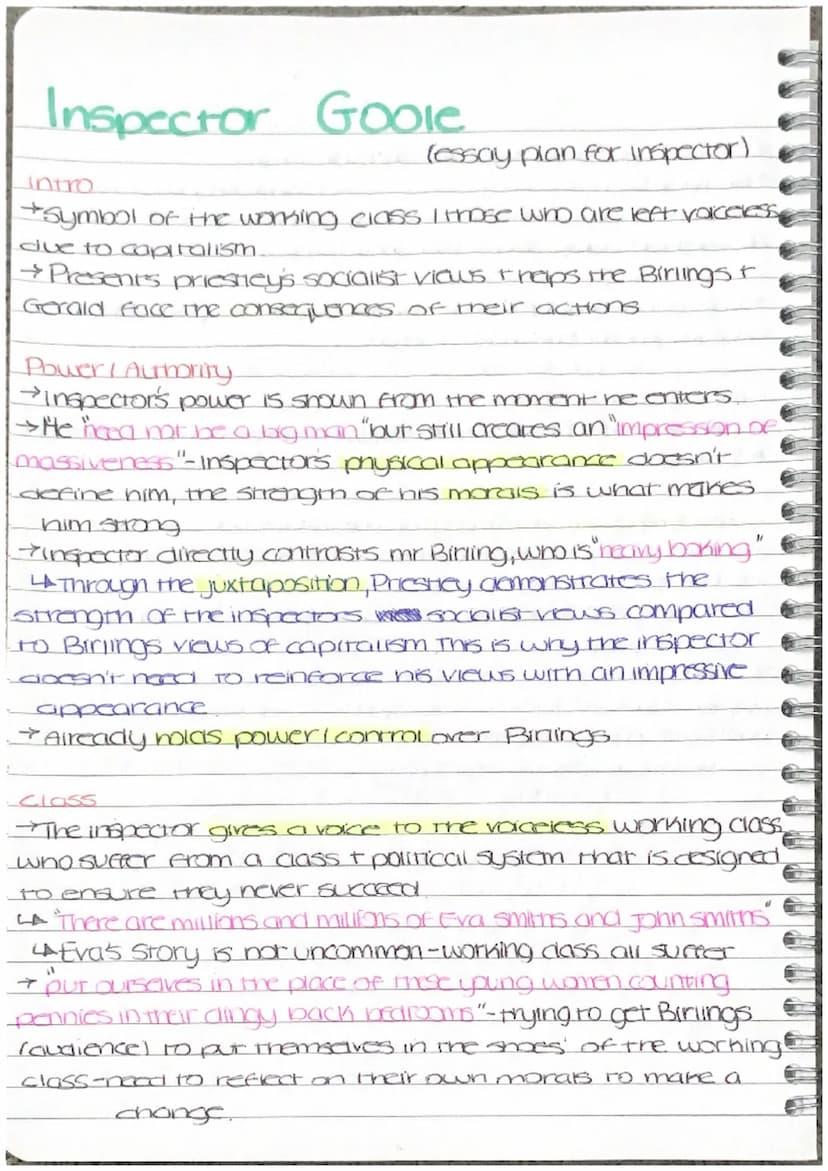 Inspector Goole
(essay plan for inspector)
Intro
→Symbol of the working class / those who are left voiceless
due to capitalism.
→Presents priestley's socialist views + helps the Birlings +
Gerald face the consequences of their actions
Power / Authority
→Inspector's power is shown from the moment he enters.
→He "need not be a big man" but still creates an "impression of
massiveness" - Inspector's physical appearance doesn't
define him, the strength of his morals is what makes
him strong
→Inspector directly contrasts mr Birling, who is "heavy looking"
↳Through the juxtaposition, Priestley demonstrates the
strength of the inspectors socialist views compared
to Birlings views of capitalism This is why the inspector
doesn't need to reinforce his views with an impressive
appearance
→Already holds power / control over Birlings
Class
→The inspector gives a voice to the voiceless working class,
who suffer from a class + political system that is designed
to ensure they never succeed
↳ "There are millions and millions of Eva smiths and John smiths"
↳Eva's story is not uncommon - working class all suffer
→ "put ourselves in the place of these young women counting
pennies in their dingy back bedrooms" - trying to get Birlings
(audience) to put themselves in the 'shoes' of the working
class - need to reflect on their own morals to make a
change.